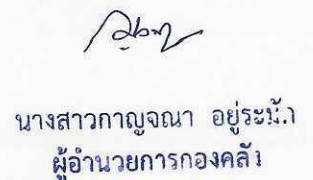 นางสาวกาญจณา
ผู้อำนวยการกองคลัง